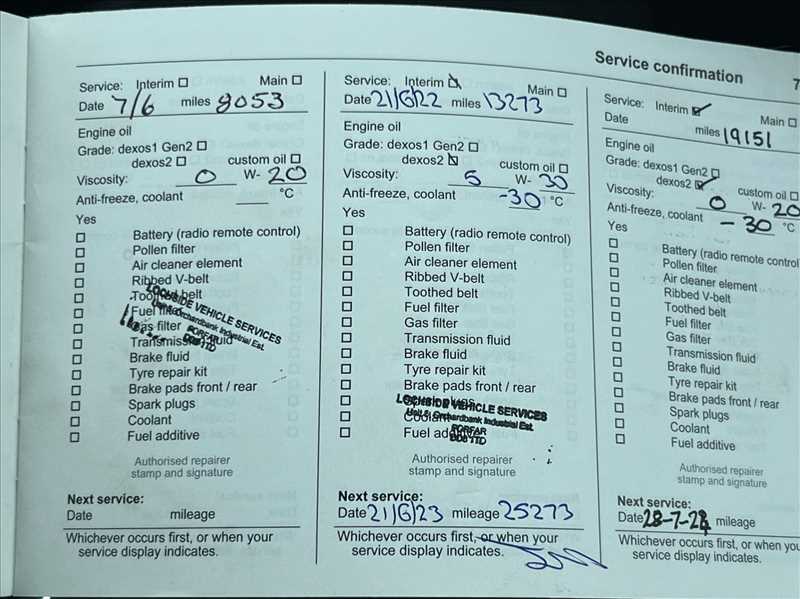 Service confirmation 7
Service: Interim ☐ Main ☐
Date 7/6 miles 8053
Engine oil
Grade: dexos1 Gen2 ☐
dexos2 ☐ custom oil ☐
Viscosity: 0 W- 20
Anti-freeze, coolant °C
Yes
☐ Battery (radio remote control)
☐ Pollen filter
☐ Air cleaner element
☐ Ribbed V-belt
☐ Toothed belt
☐ Fuel filter
☐ Gas filter
☐ Transmission fluid
☐ Brake fluid
☐ Tyre repair kit
☐ Brake pads front / rear
☐ Spark plugs
☐ Coolant
☐ Fuel additive
LOCHSIDE VEHICLE SERVICES
Unit 5, Orchardbank Industrial Est.
FORFAR
DD8 1TD
Authorised repairer
stamp and signature
Next service:
Date mileage
Whichever occurs first, or when your
service display indicates.
Service: Interim ☑ Main ☐
Date 21/6/22 miles 13273
Engine oil
Grade: dexos1 Gen2 ☐
dexos2 ☑ custom oil ☐
Viscosity: 5 W- 30
Anti-freeze, coolant -30 °C
Yes
☐ Battery (radio remote control)
☐ Pollen filter
☐ Air cleaner element
☐ Ribbed V-belt
☐ Toothed belt
☐ Fuel filter
☐ Gas filter
☐ Transmission fluid
☐ Brake fluid
☐ Tyre repair kit
☐ Brake pads front / rear
☐ Spark plugs
☐ Coolant
☐ Fuel additive
LOCHSIDE VEHICLE SERVICES
Unit 5, Orchardbank Industrial Est.
FORFAR
DD8 1TD
Authorised repairer
stamp and signature
Next service:
Date 21/6/23 mileage 25273
Whichever occurs first, or when your
service display indicates.
Service: Interim ☑ Main ☐
Date miles 19151
Engine oil
Grade: dexos1 Gen2 ☐
dexos2 ☑ custom oil ☐
Viscosity: 0 W- 20
Anti-freeze, coolant -30 °C
Yes
☐ Battery (radio remote control)
☐ Pollen filter
☐ Air cleaner element
☐ Ribbed V-belt
☐ Toothed belt
☐ Fuel filter
☐ Gas filter
☐ Transmission fluid
☐ Brake fluid
☐ Tyre repair kit
☐ Brake pads front / rear
☐ Spark plugs
☐ Coolant
☐ Fuel additive
Authorised repairer
stamp and signature
Next service:
Date 28-7-24 mileage
Whichever occurs first, or when you
service display indicates.